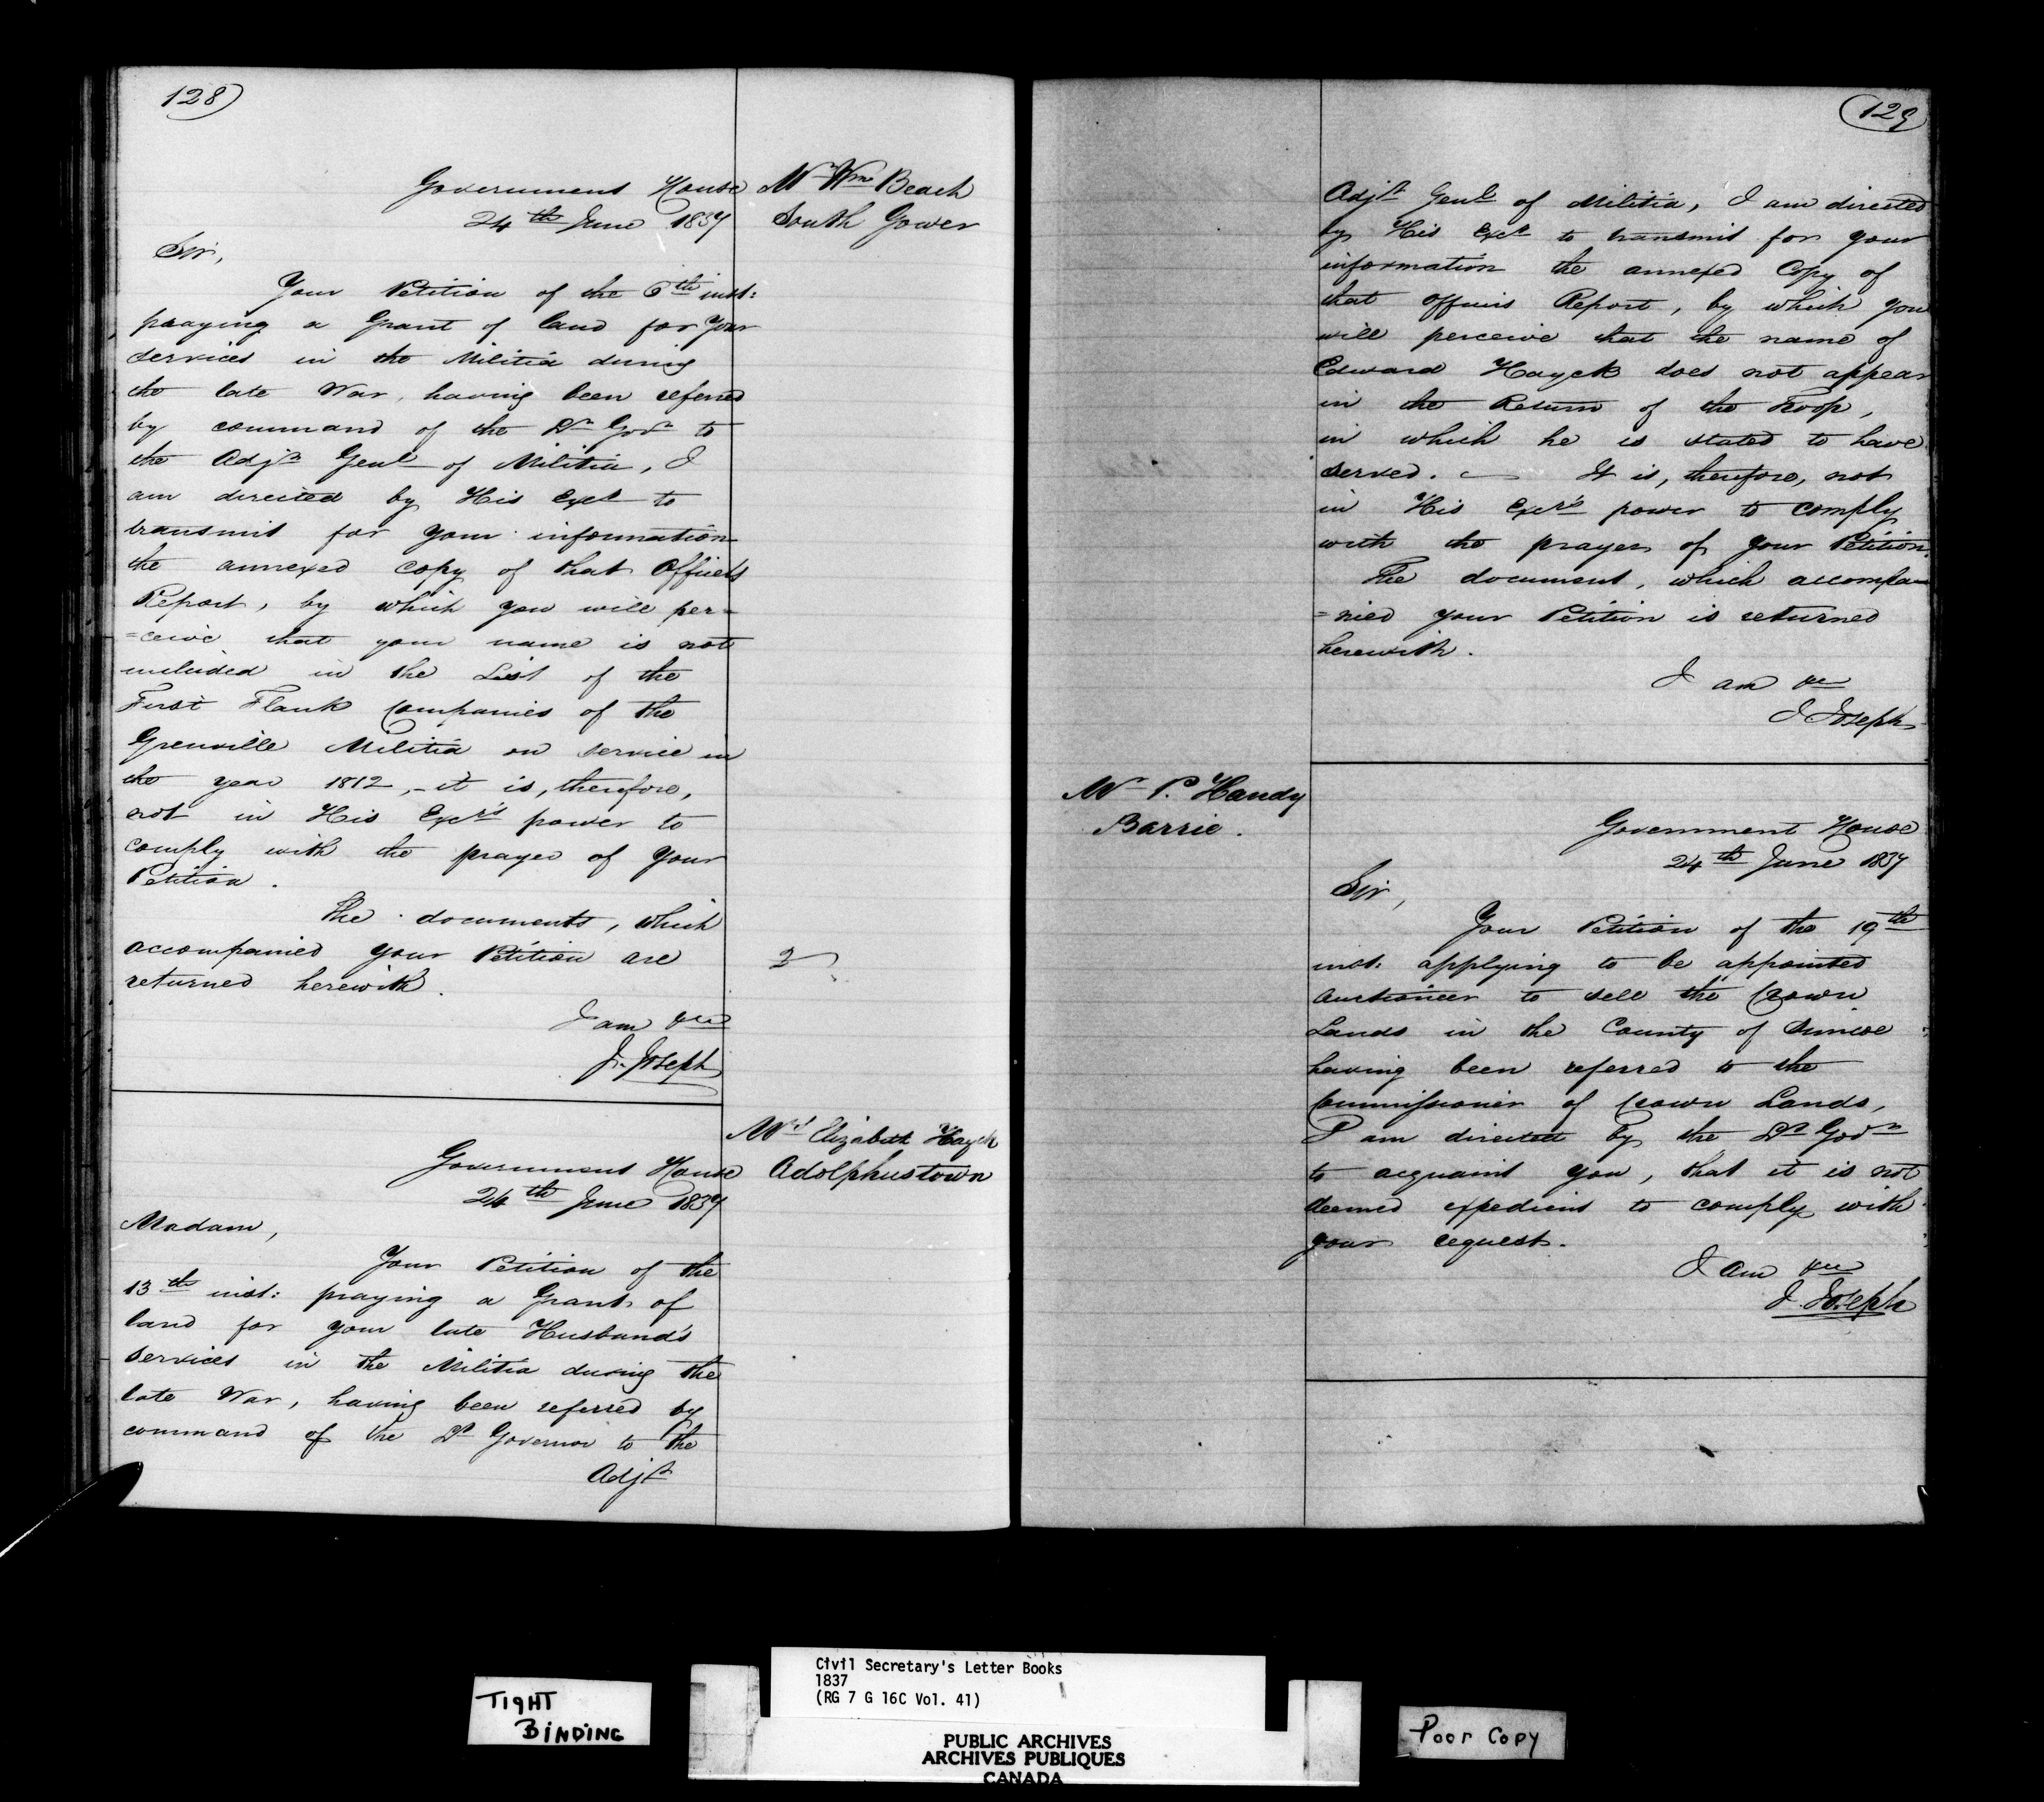 128
Mr Wm Beach
South Gower
Government House
24th June 1837
Sir,
Your Petition of the 6th inst:
praying a Grant of land for your
services in the Militia during
the late War, having been referred
by command of the Lt Govr to
the Adjt Genl of Militia, I
am directed by His Excy to
transmit for your information
the annexed copy of that Officers
Report, by which you will per=
=ceive that your name is not
included in the List of the
First Flank Companies of the
Grenville Militia on service in
the year 1812,- it is, therefore,
not in His Excy's power to
comply with the prayer of your
Petition.
The documents, which
accompanied your Petition are
returned herewith.
3
I am &c
J. Joseph
Mrs Elizabeth Hayck
Adolphustown
Government House
24th June 1837
Madam,
Your Petition of the
13th inst: praying a Grant of
land for your late Husband's
services in the Militia during the
late War, having been referred by
command of the Lt Governor to the
Adjt
129
Adjt Genl of Militia, I am directed
by His Excy to transmit for your
information the annexed Copy of
that officers Report, by which you
will perceive that the name of
Edward Hayck does not appear
in the Return of the Troop,
in which he is stated to have
served. — It is, therefore, not
in His Excy's power to comply
with the prayer of your Petition.
The document, which accompa
=nied your Petition is returned
herewith.
I am &c
J Joseph
Mr P. Handy
Barrie.
Government House
24th June 1837
Sir,
Your Petition of the 19th
inst: applying to be appointed
Auctioneer to sell the Crown
Lands in the County of Simcoe
having been referred to the
Commissioner of Crown Lands,
I am directed by the Lt Govr
to acquaint you, that it is not
deemed expedient to comply with
your request.
I am &c
J. Joseph
TIGHT
BINDING
Civil Secretary's Letter Books
1837
(RG 7 G 16C Vol. 41)
PUBLIC ARCHIVES
ARCHIVES PUBLIQUES
CANADA
Poor Copy